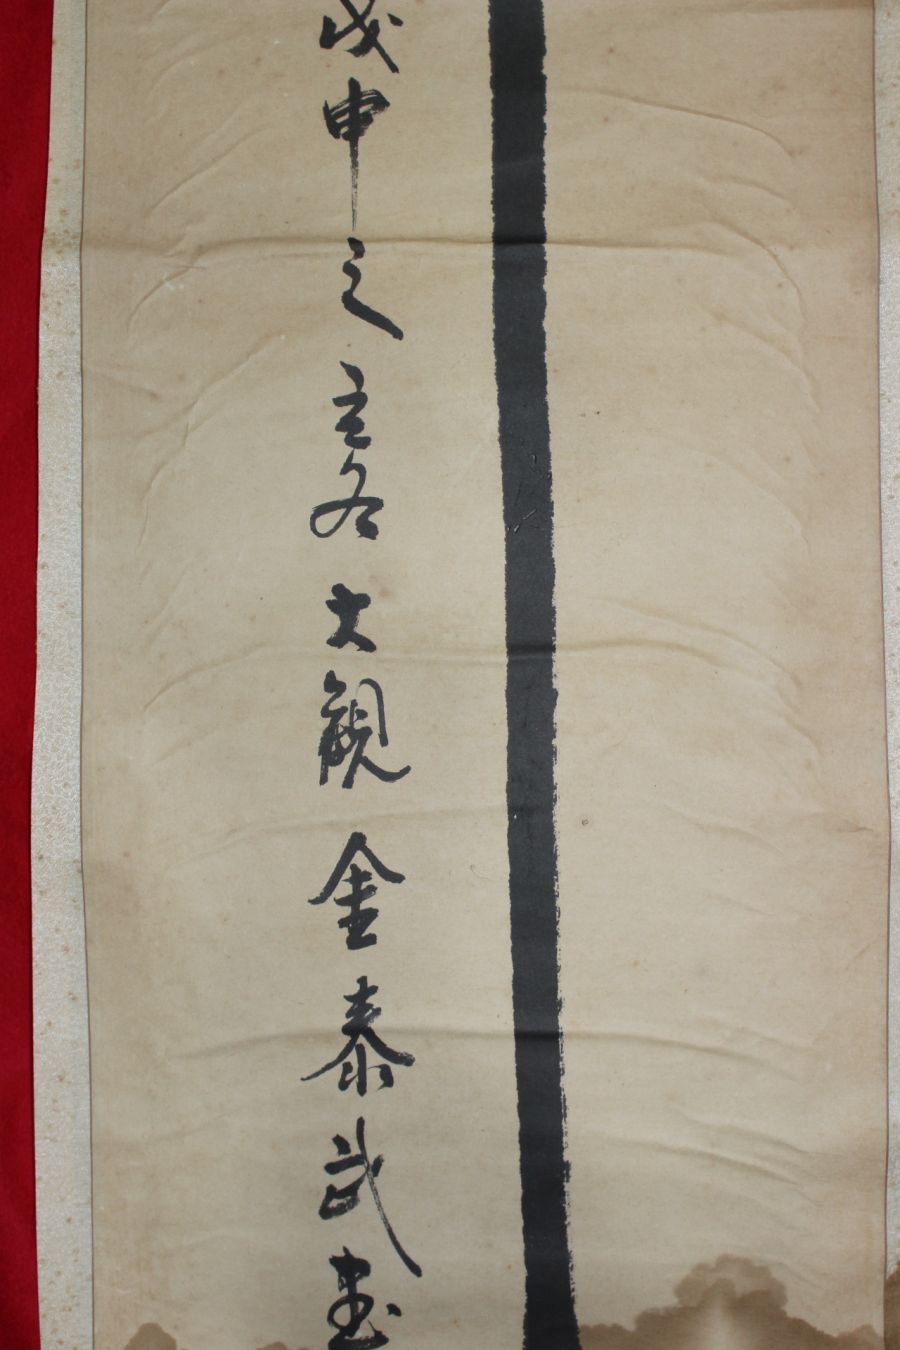 戊申之立冬大觀金泰武書